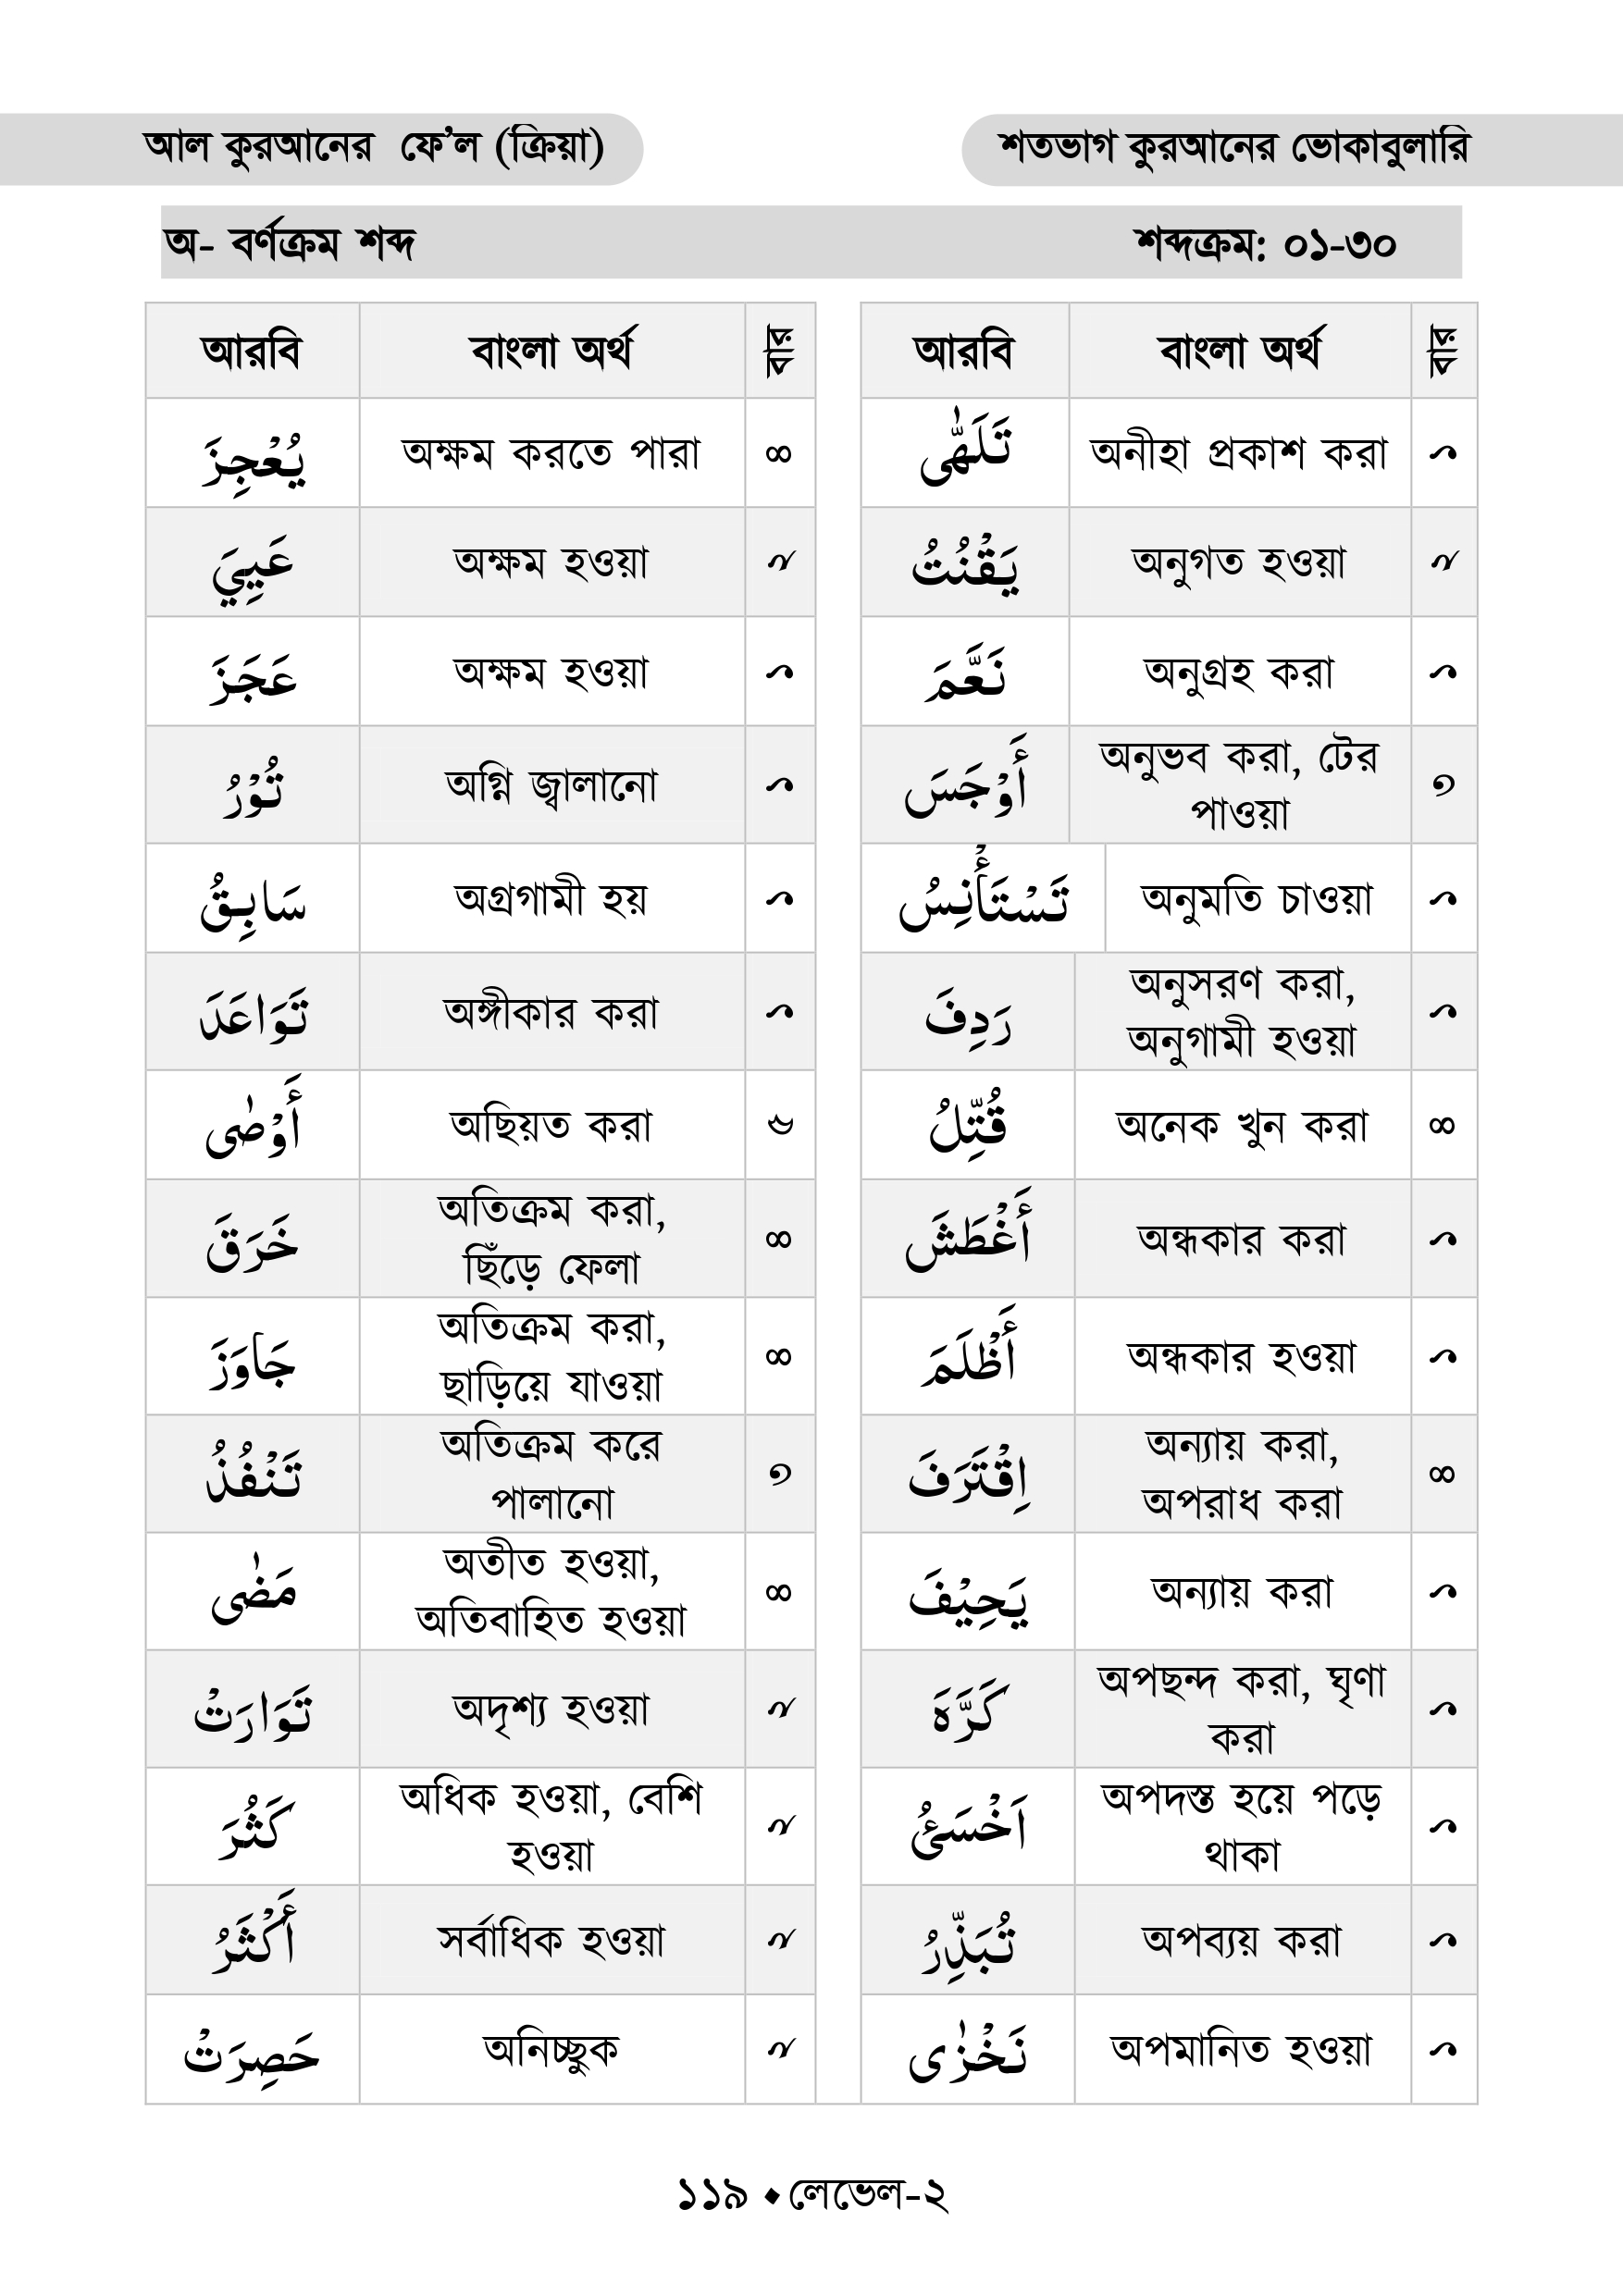 আল কুরআনের ফে’ল (ক্রিয়া)
শতভাগ কুরআনের ভোকাবুলারি
অ- বর্ণক্রম শব্দ শব্দক্রম: ০১-৩০
আরবি বাংলা অর্থ বার
يُعْجِزَ অক্ষম করতে পারা ৪
عَيِيَ অক্ষম হওয়া ২
عَجَزَ অক্ষম হওয়া ১
تُوْرُ অগ্নি জ্বালানো ১
سَابِقُ অগ্রগামী হয় ১
تَوَاعَدَ অঙ্গীকার করা ১
أَوْصٰى অছিয়ত করা ৫
خَرَقَ অতিক্রম করা,
ছিঁড়ে ফেলা ৪
جَاوَزَ অতিক্রম করা,
ছাড়িয়ে যাওয়া ৪
تَنْفُذُ অতিক্রম করে
পালানো ৩
مَضٰى অতীত হওয়া,
অতিবাহিত হওয়া ৪
تَوَارَتْ অদৃশ্য হওয়া ২
كَثُرَ অধিক হওয়া, বেশি
হওয়া ২
أَكْثَرُ সর্বাধিক হওয়া ২
حَصِرَتْ অনিচ্ছুক ২
আরবি বাংলা অর্থ বার
تَلَهّٰى অনীহা প্রকাশ করা ১
يَقْنُتُ অনুগত হওয়া ২
نَعَّمَ অনুগ্রহ করা ১
أَوْجَسَ অনুভব করা, টের
পাওয়া ৩
تَسْتَأْنِسُ অনুমতি চাওয়া ১
رَدِفَ অনুসরণ করা,
অনুগামী হওয়া ১
قُتِّلُ অনেক খুন করা ৪
أَغْطَشَ অন্ধকার করা ১
أَظْلَمَ অন্ধকার হওয়া ১
اِقْتَرَفَ অন্যায় করা,
অপরাধ করা ৪
يَحِيْفَ অন্যায় করা ১
كَرَّهَ অপছন্দ করা, ঘৃণা
করা ১
اَخْسَئُ অপদস্ত হয়ে পড়ে
থাকা ১
تُبَذِّرُ অপব্যয় করা ১
نَخْزٰى অপমানিত হওয়া ১
১১৯ ♦ লেভেল-২